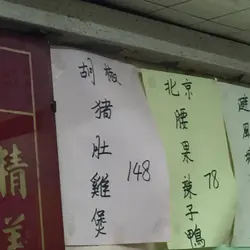 胡椒
豬
肚
雞
煲
148
北京
腰
果
辣
子
鴨
78
避
風
精
美